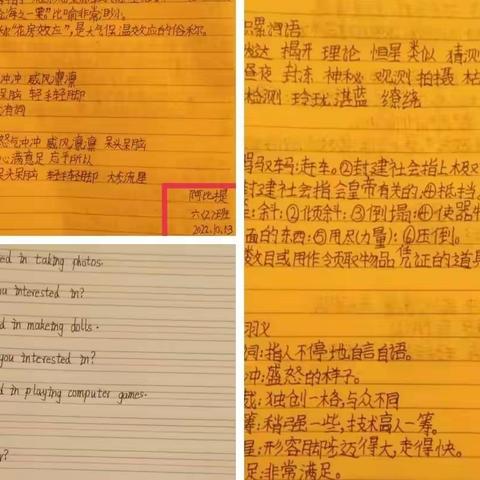 沧海之一粟”比喻非常渺小。
“花房效应”,是大气保温效应的俗称。
冲冲 威风凛凛
呆脑 轻手轻脚
怒气冲冲 威风凛凛 呆头呆脑
心满意足 忘乎所以
呆头呆脑 轻手轻脚 大步流星
阿比提
六(2)班
2022.10.13
ed in taking photos.
you interested in?
d in makeing dolls.
you interested in?
d in playing computer games.
积累词语
揭开 理论 恒星 类似 猜测
昼夜 封冻 神秘 观测 拍摄 枯
检测 玲珑 湛蓝 缭绕
驾驭车马:赶车。②封建社会指上级对
封建社会指皇帝有关的,④抵挡
斜:②倾斜:③倒塌:④使器物
面的东西:⑤用尽(力量):⑥压倒。
数目或用作领取物品凭证的道具
词:指人不停地自言自语。
冲:盛怒的样子。
独创一格,与众不同
筹:稍强一些,技术高人一筹。
星:形容脚步迈得大,走得快。
足:非常满足。